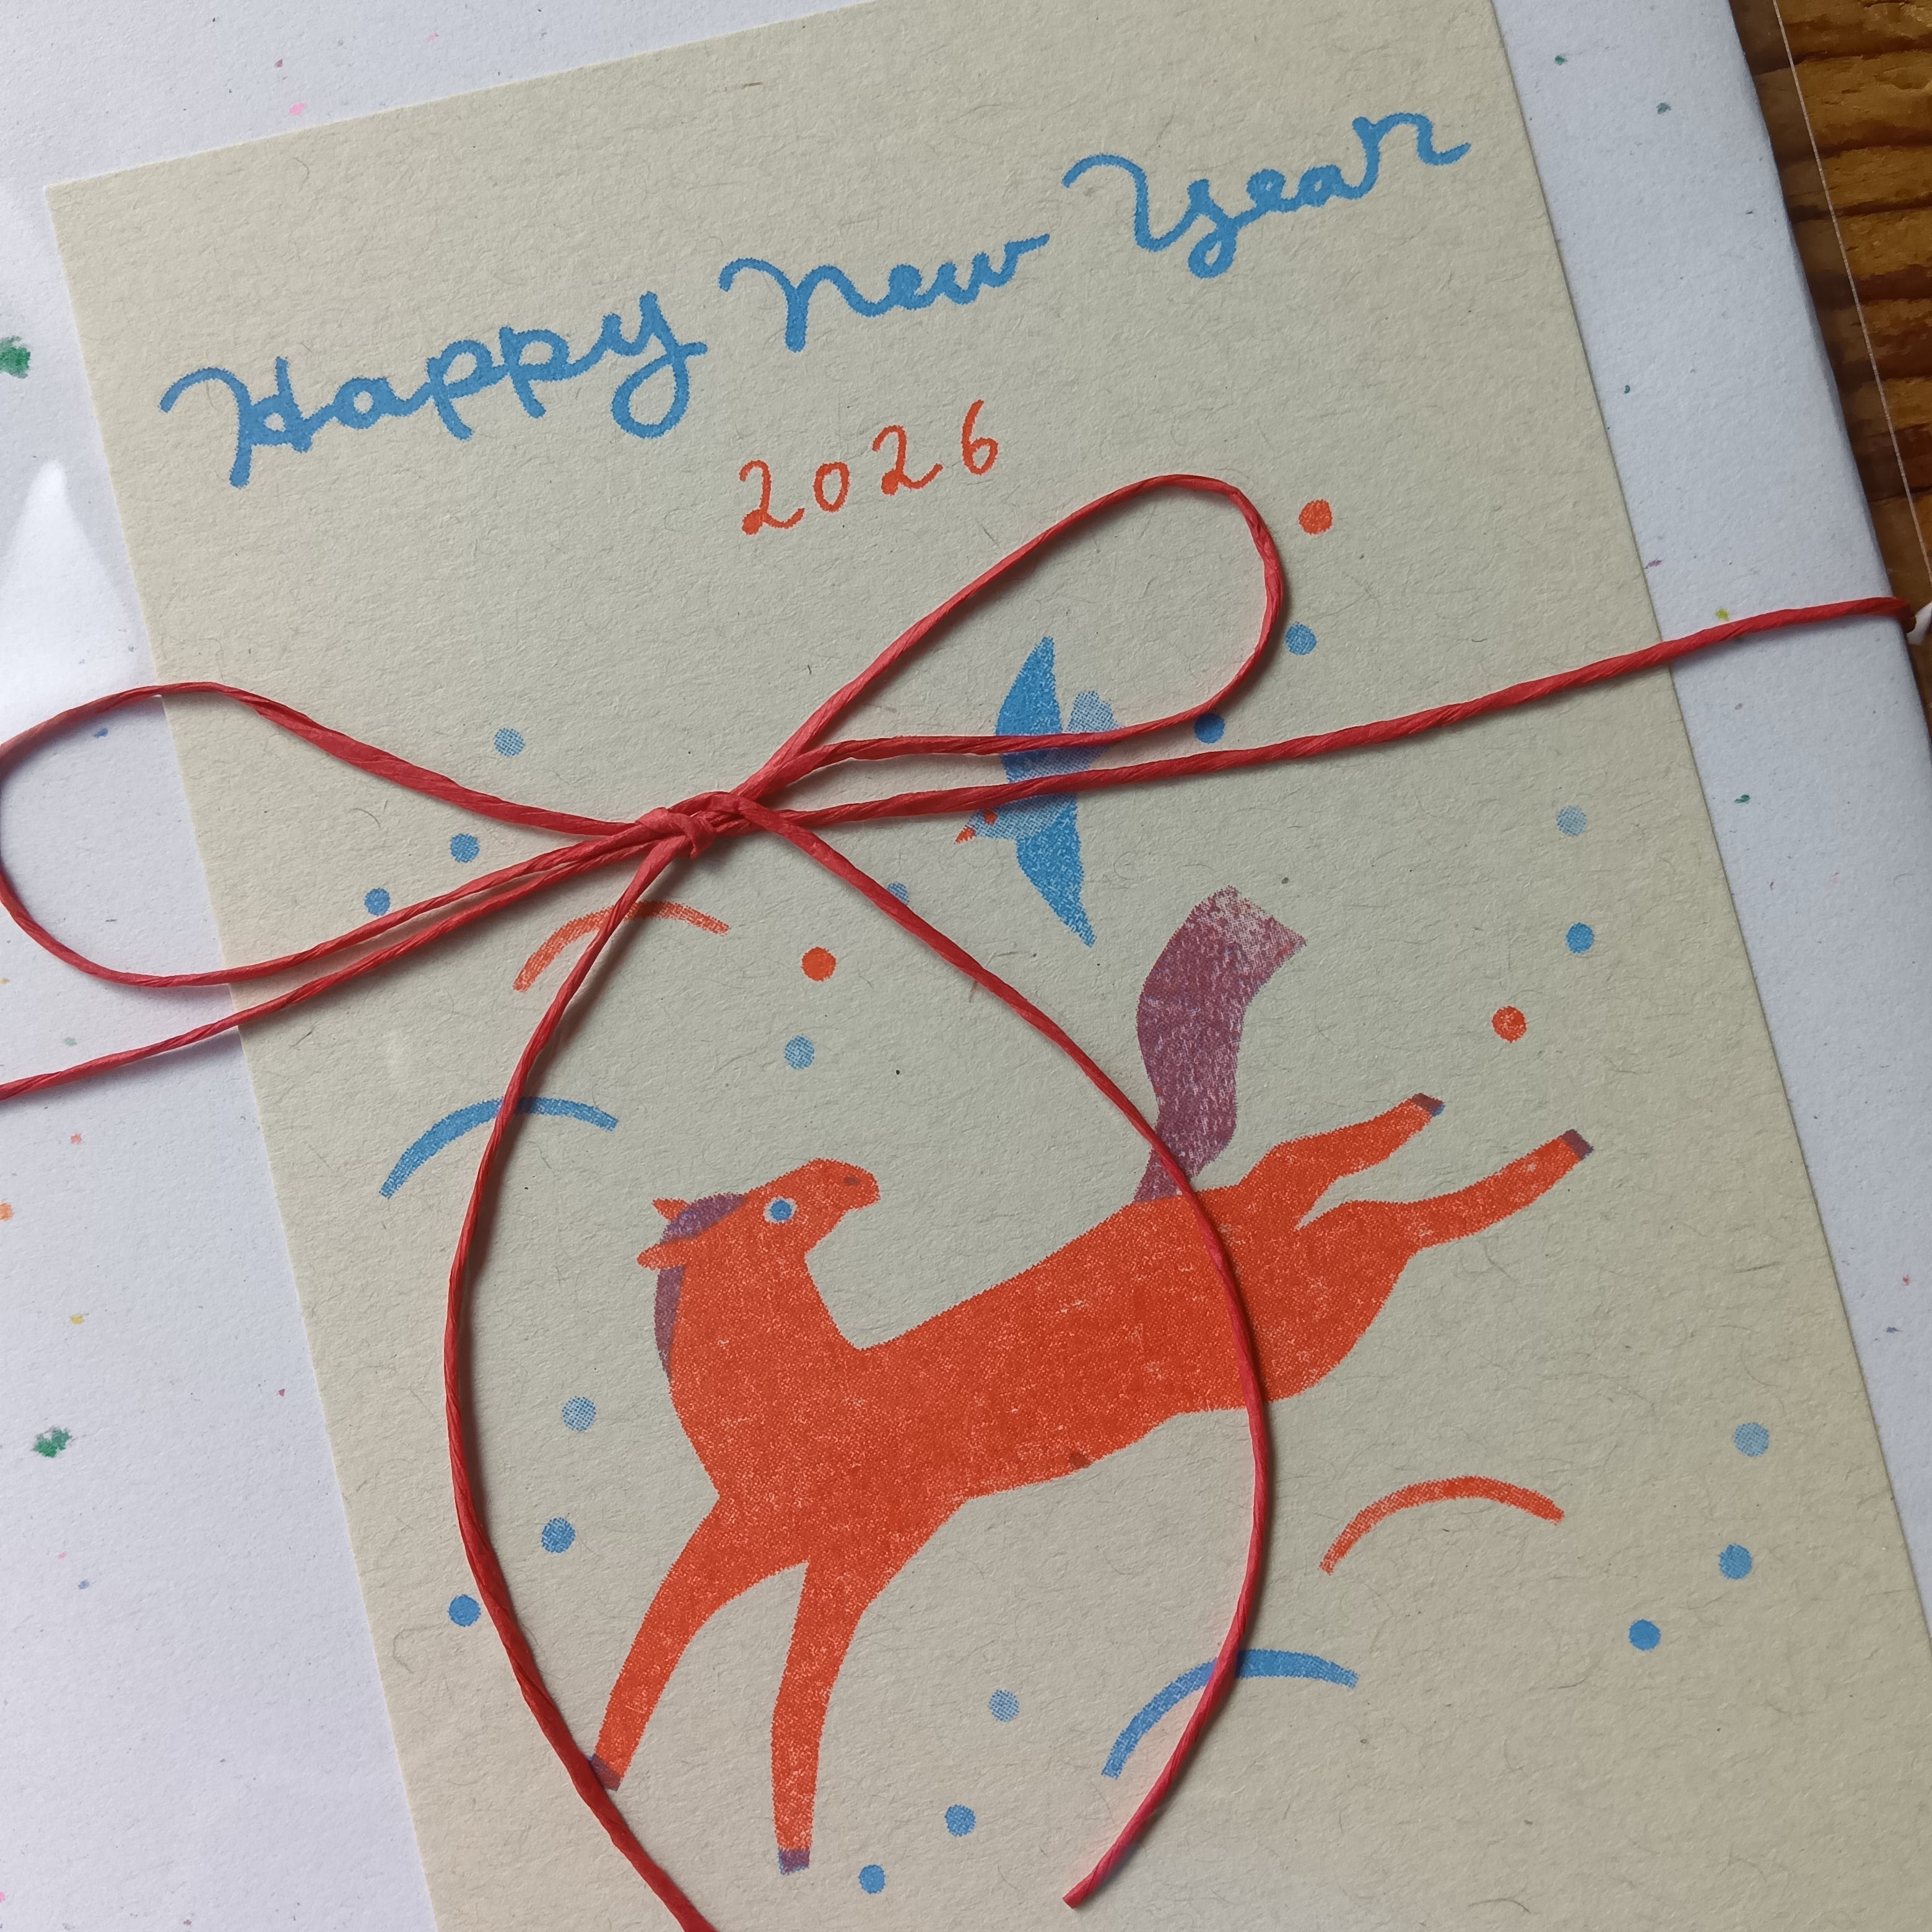 Happy New Year
2026